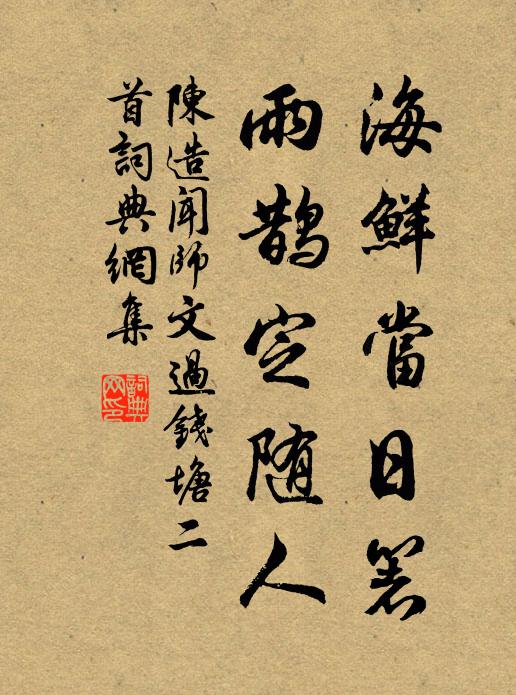 海鮮當日箸
雨鵲定随人
陳造聞師文過錢塘二
首詞典網集
詞典网印